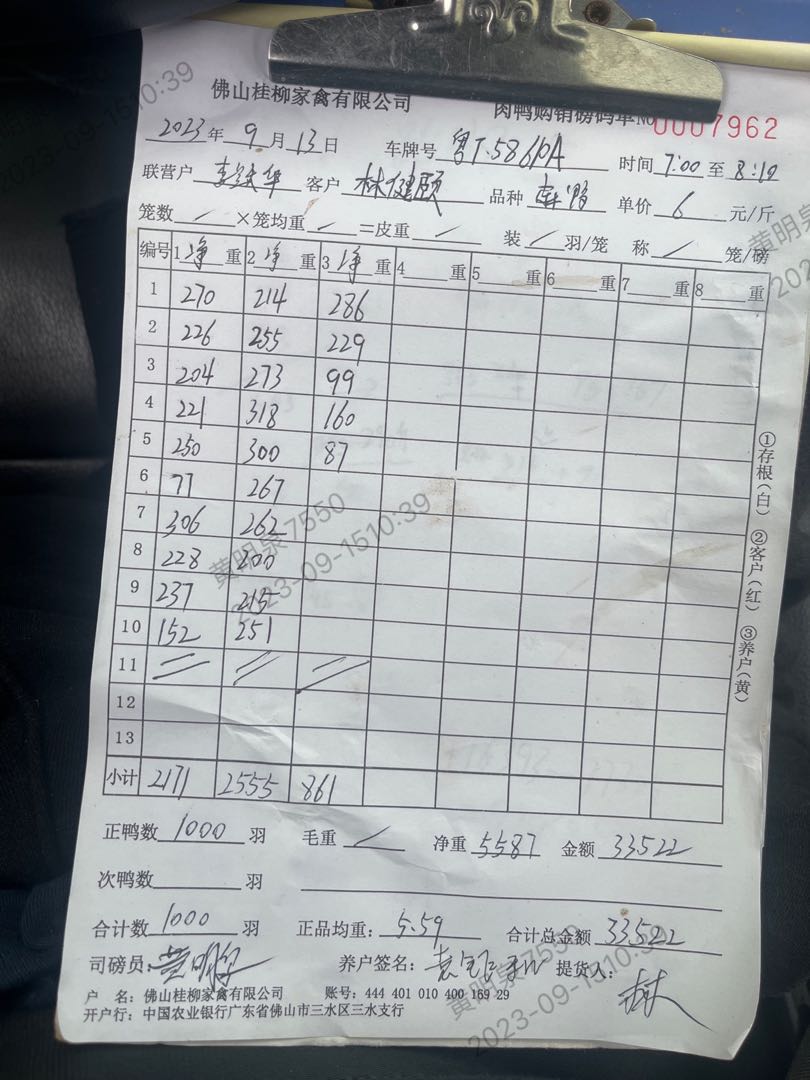 佛山桂柳家禽有限公司 肉鸭购销磅码单No 0007962
2023年9月13日 车牌号 粤T·58610A 时间 7:00 至 8:10
联营户 客户 林健颐 品种 单价 6 元/斤
笼数 / ×笼均重 / =皮重 / 装 / 羽/笼 称 / 笼/磅
编号 1 净 重 2 净 重 3 净 重 4 重 5 重 6 重 7 重 8 重
1 270 214 286
2 226 255 229
3 204 273 99
4 221 318 160
5 250 300 87
6 77 267
7 306 262
8 228 200
9 237 215
10 152 251
11 // // //
12
13
小计 2171 2555 861
正鸭数 1000 羽 毛重 / 净重 5587 金额 33522
次鸭数 羽
合计数 1000 羽 正品均重: 5.59 合计总金额 33522
司磅员: 黄明泉 养户签名: 提货人:
户 名: 佛山桂柳家禽有限公司 账号: 444 401 010 400 169 29
开户行: 中国农业银行广东省佛山市三水区三水支行
①存根(白) ②客户(红) ③养户(黄)
黄明泉7550
2023-09-15 10:39